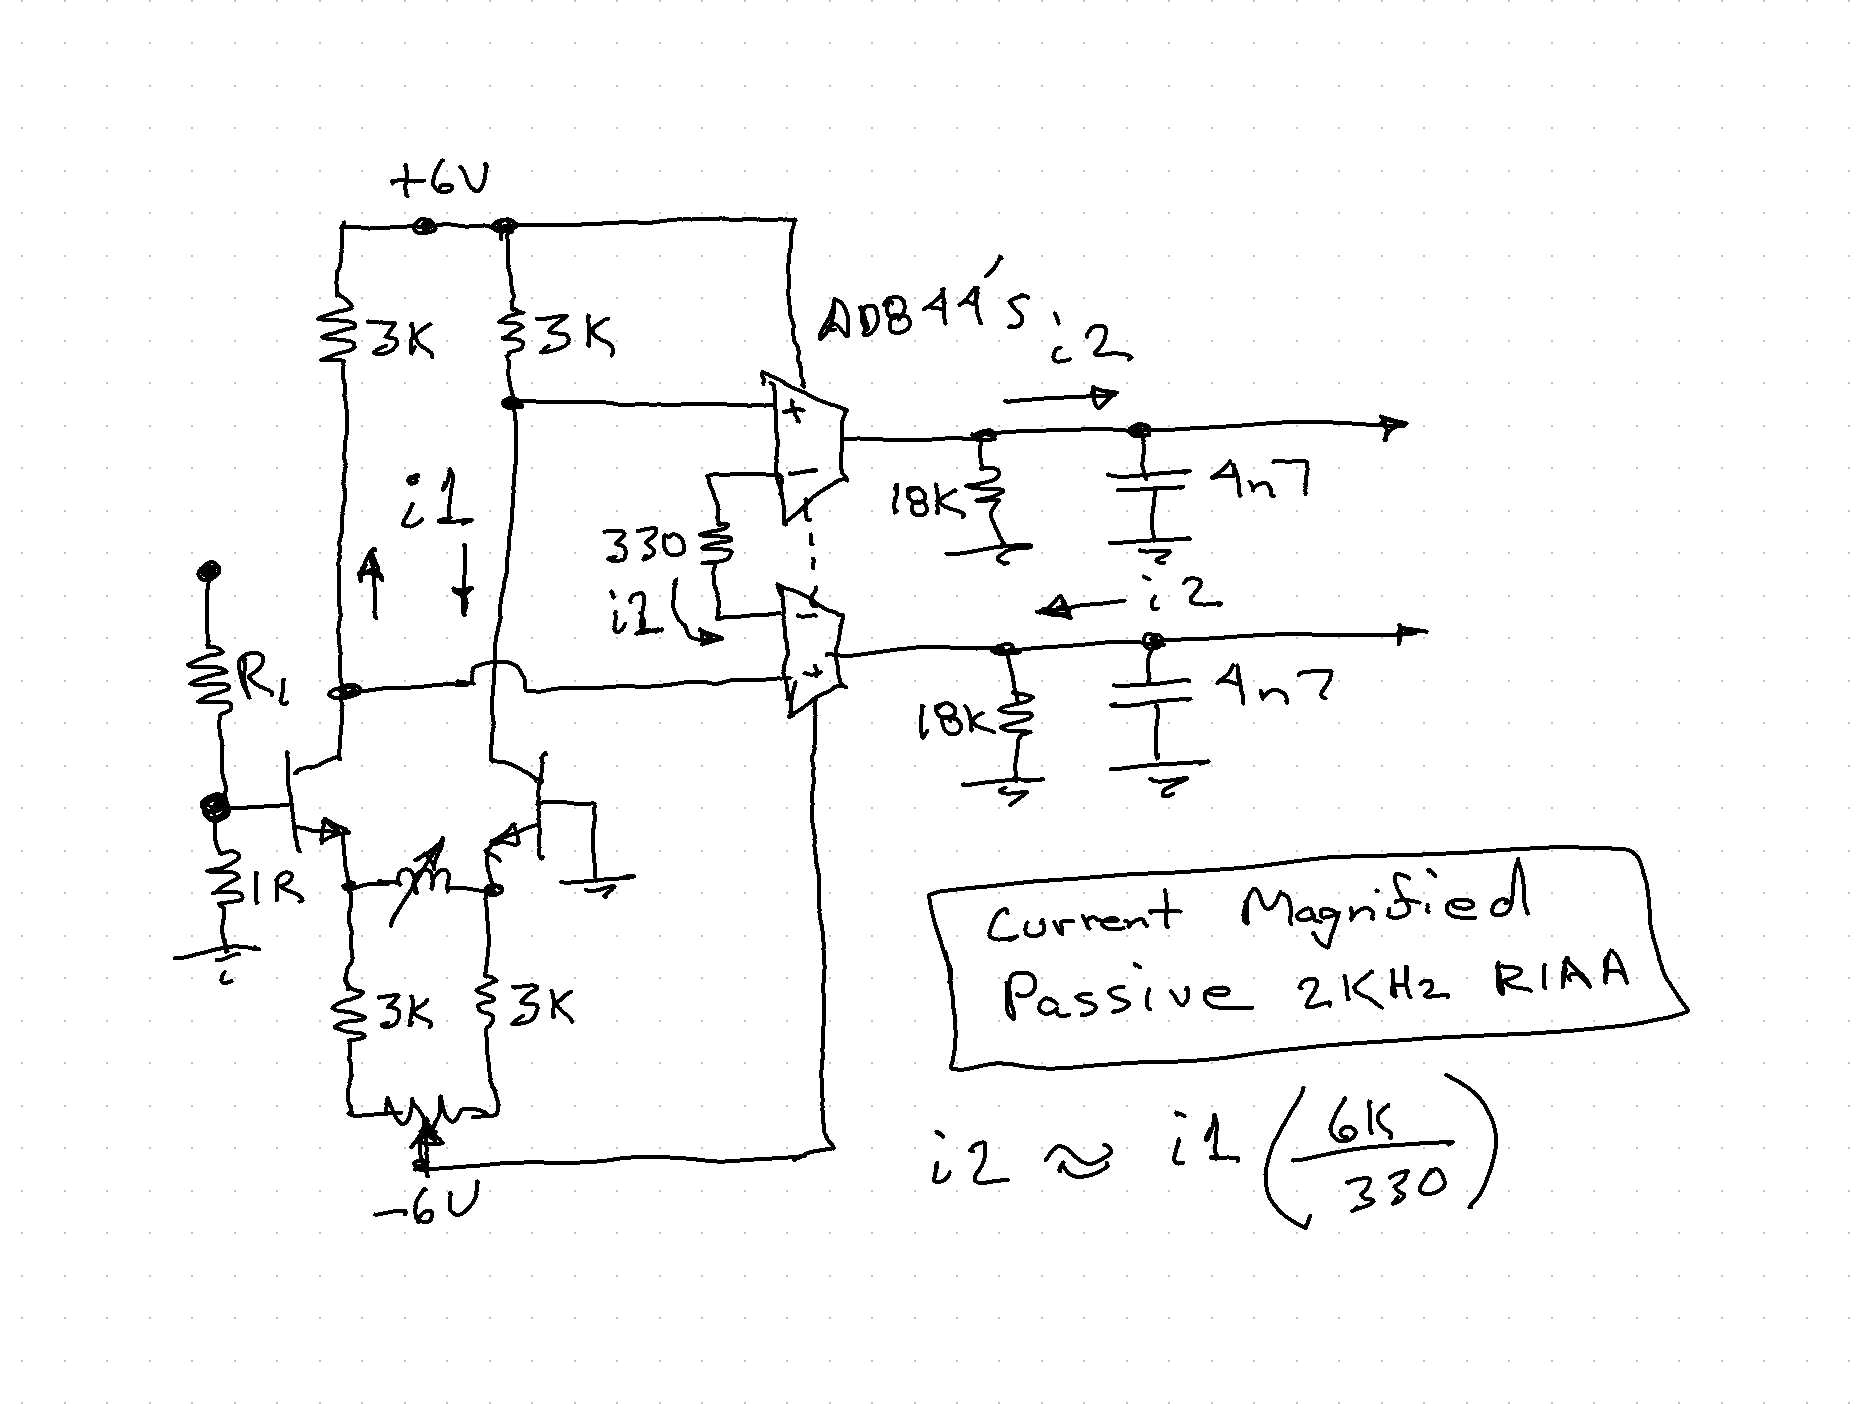 +6V
3K
3K
AD844's
i2
+
-
18K
4n7
i1
330
i2
i2
-
+
18K
4n7
R1
1R
3K
3K
-6V
Current Magnified
Passive 2KHz RIAA
i2 ≈ i1 (6K/330)